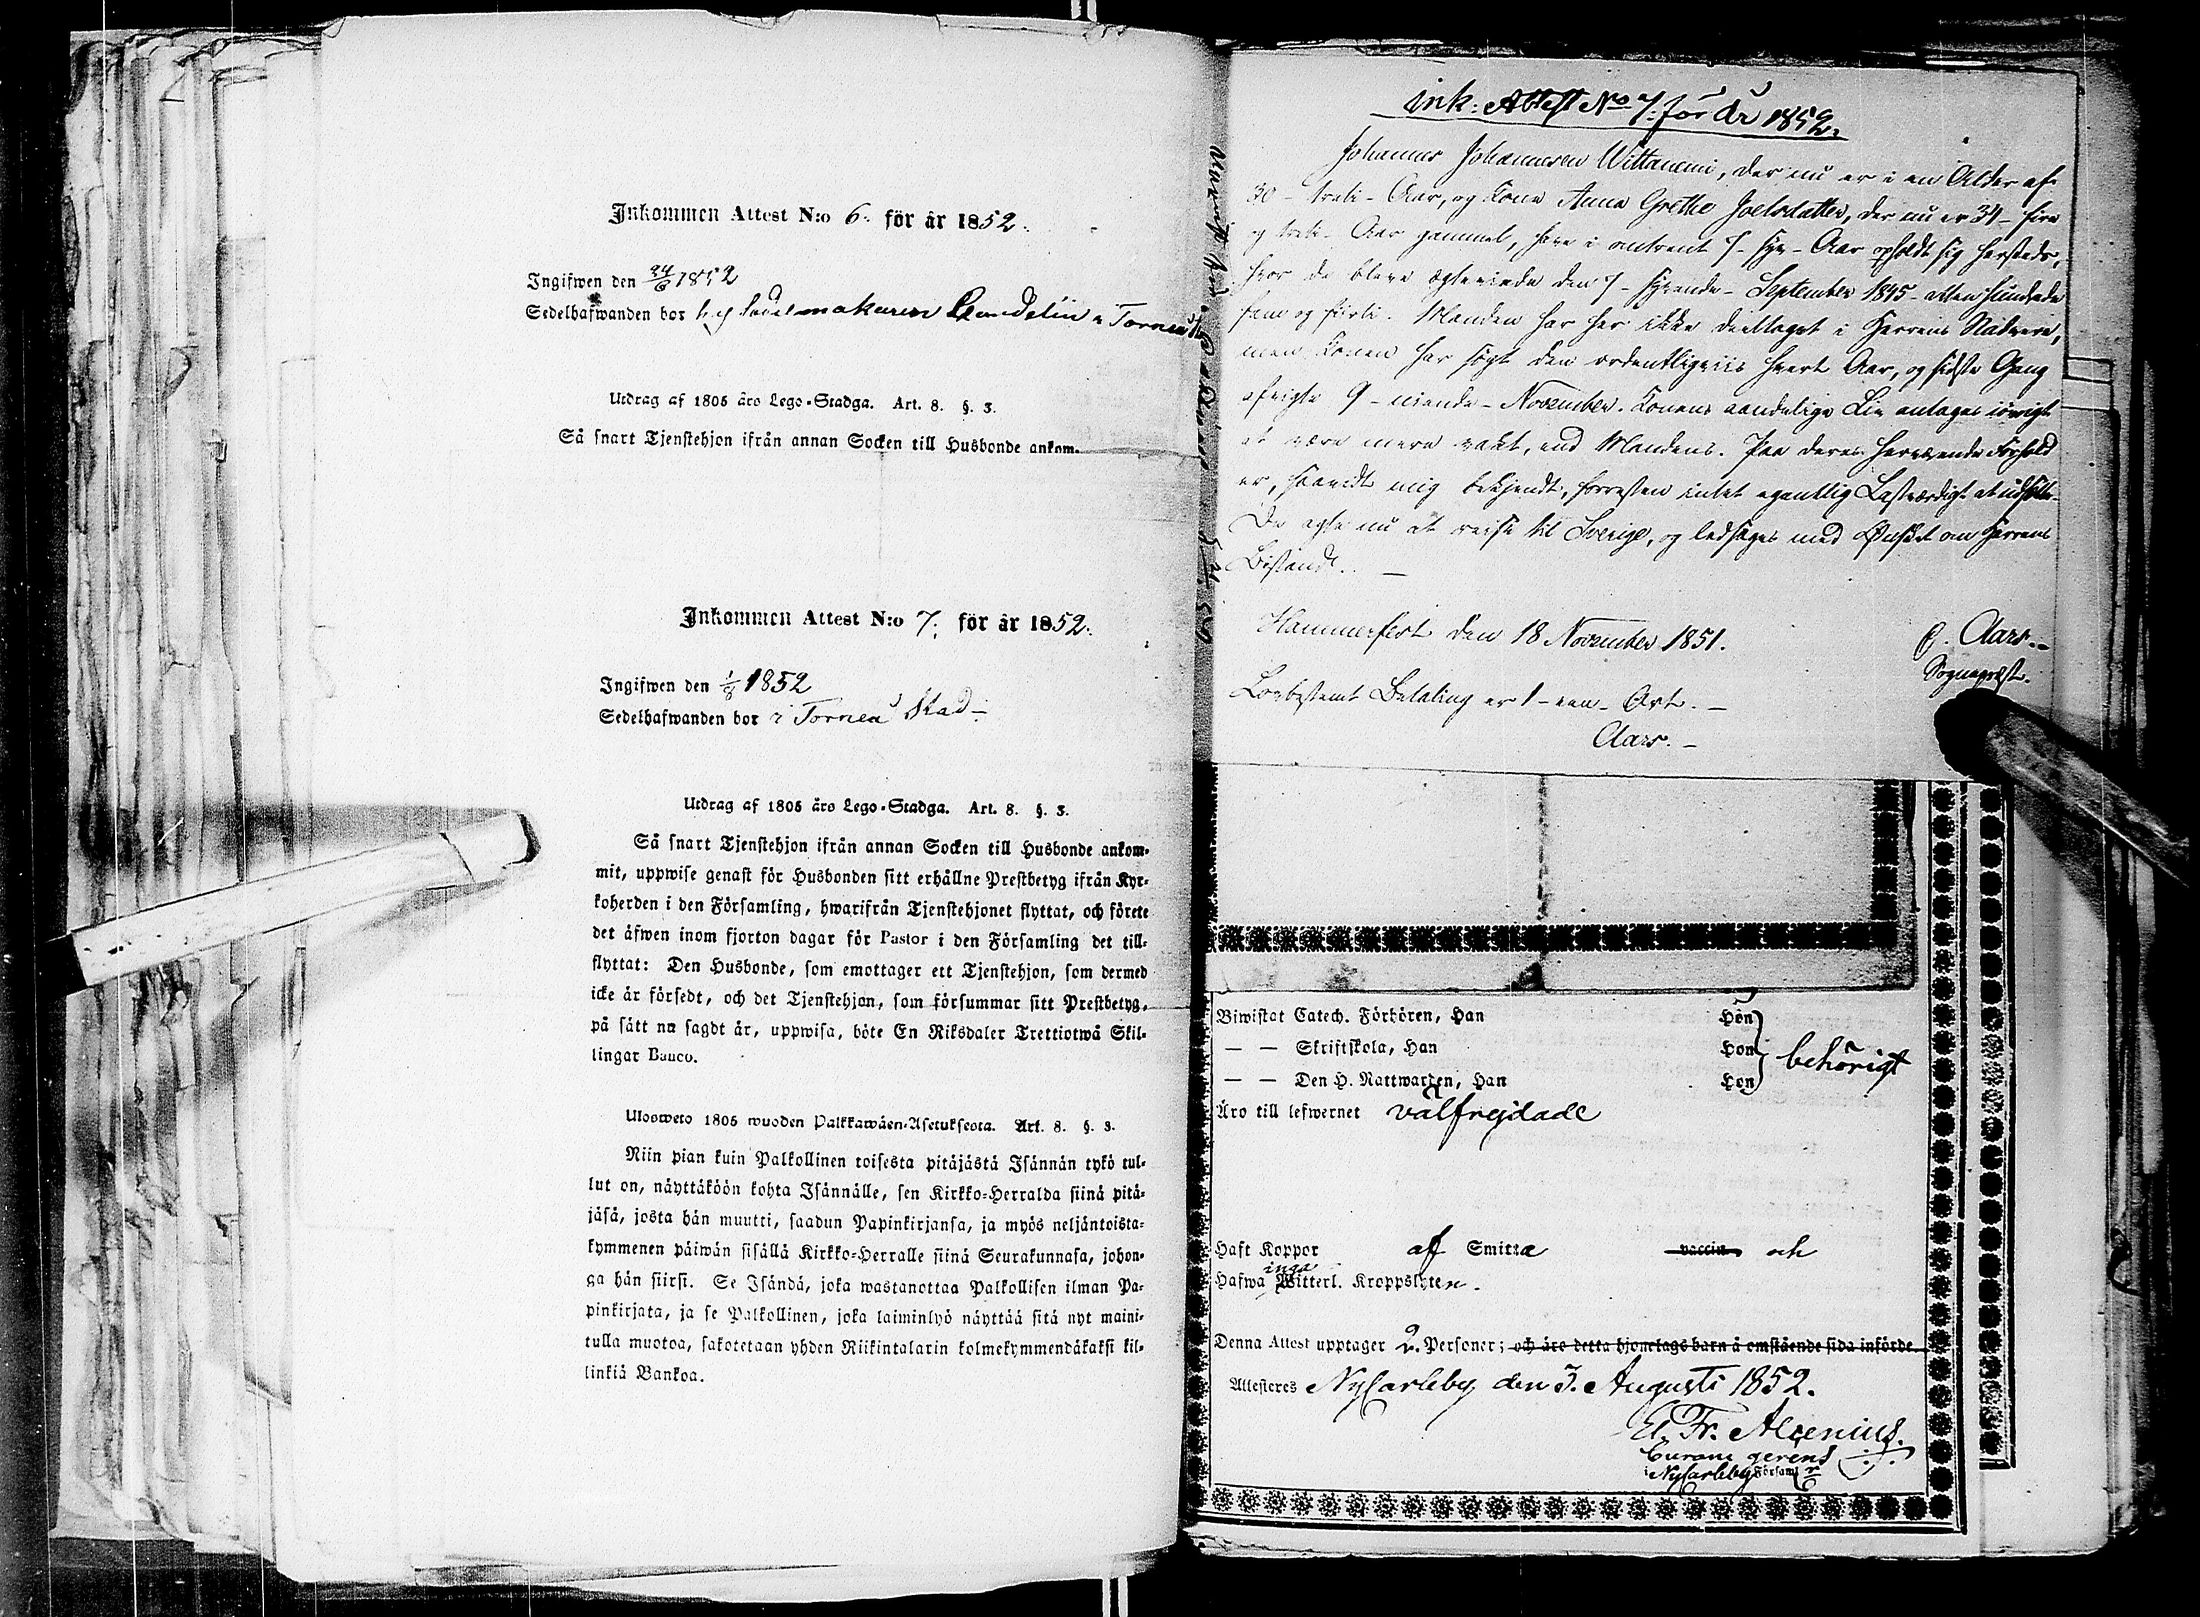 Inkommen Attest N:o 6. för år 1852.
Ingifwen den 24/6 1852
Sedelhafwanden bor hos sadelmakaren i Torneå
Utdrag af 1805 års Lego-Stadga. Art. 8. §. 3.
Så snart Tjenstehjon ifrån annan Socken till Husbonde ankom-
Inkommen Attest N:o 7. för år 1852.
Ingifwen den 1/8 1852
Sedelhafwanden bor i Torneå Stad
Utdrag af 1805 års Lego-Stadga. Art. 8. §. 3.
Så snart Tjenstehjon ifrån annan Socken till Husbonde ankom-
mit, uppwise genast för Husbonden sitt erhållne Prestbetyg ifrån Kyr-
koherden i den Församling, hwarifrån Tjenstehjonet flyttat, och förete
det äfwen inom fjorton dagar för Pastor i den Församling det till-
flyttat: Den Husbonde, som emottager ett Tjenstehjon, som dermed
icke är försedt, och det Tjenstehjon, som försummar sitt Prestbetyg,
på sätt nu sagdt är, uppwisa, böte En Riksdaler Trettiotwå Skil-
lingar Banco.
Ulosweto 1805 wuoden Palkkawäen-Asetuksesta. Art. 8. §. 3.
Niin pian kuin Palkollinen toisesta pitäjästä Isännän tykö tul-
lut on, näyttäköön kohta Isännälle, sen Kirkko-Herralda siinä pitä-
jäsä, josta hän muutti, saadun Papinkirjansa, ja myös neljäntoista-
kymmenen päiwän sisällä Kirkko-Herralle siinä Seurakunnasa, johon-
ga hän siirsi. Se Isändä, joka wastanottaa Palkollisen ilman Pa-
pinkirjata, ja se Palkollinen, joka laiminlyö näyttää sitä nyt maini-
tulla muotoa, sakotetaan yhden Riikintalarin kolmekymmendäkaksi kil-
linkiä Bankoa.
ink: Attest No 7. för år 1852.
Johannes Johannesen Wittaniemi, der nu er i en Alder af
30 - treti - Aar, og Kone Anna Grethe Joelsdatter, der nu er 34 - fire
og treti - Aar gammel, have i omtrent 7 - syv - Aar opholdt sig hersteds,
hvor de bleve ægteviede den 7 - syvende - September 1845 - atten hundrede
fem og førti. Manden har her ikke deeltaget i Herrens Nadvere,
men Konen har søgt den ordentligviis hvert Aar, og sidste Gang
afvigte 9 - niende - November. Konens aandelige Liv antages iøvrigt
at være mere vakt, end Mandens. Paa deres herværende Forhold
er, saavidt mig bekjendt, forresten intet egentlig Lastværdigt at udsætte.
De agte nu at reise til Sverige, og ledsages med Ønsket om Herrens
Bistand.
Hammerfest den 18 November 1851.
Aars.
Sognepræst.
Lovbestemt Betaling er 1 - een - Ort.
Aars.
Biwistat Catech. Förhören, Han Hon
— — Skriftskola, Han Hon behörigt
— — Den H. Nattwarden, Han Hon
Äro till lefwernet välfrejdade
Haft Koppor af Smitta vaccin och
Hafwa inga Witterl. Kroppslyten.
Denna Attest upptager 2. Personer; och äro detta hjonelags barn å omstående sida införde.
Attesteres NyCarleby den 3. Augusti 1852.
El. Fr. Alcenius.
Curam gerens
i NyCarleby Förseml